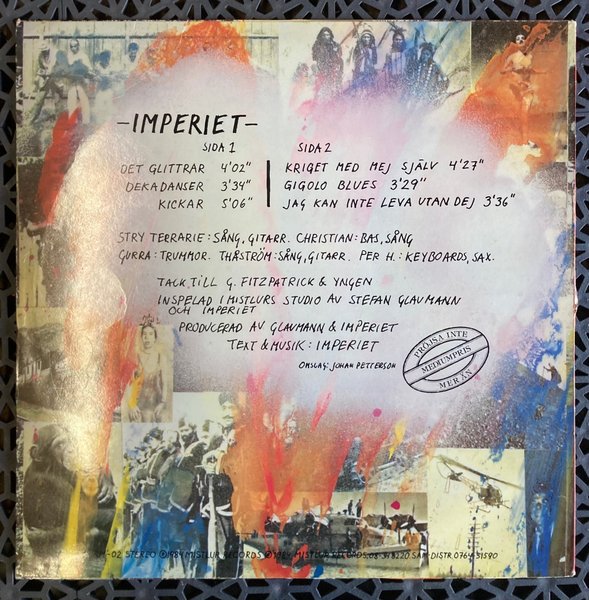 -IMPERIET-
SIDA 1
DET GLITTRAR 4'02"
DEKADANSER 3'34"
KICKAR 5'06"
SIDA 2
KRIGET MED MEJ SJÄLV 4'27"
GIGOLO BLUES 3'29"
JAG KAN INTE LEVA UTAN DEJ 3'36"
STRY TERRARIE: SÅNG, GITARR. CHRISTIAN: BAS, SÅNG
GURRA: TRUMMOR. THÅSTRÖM: SÅNG, GITARR. PER H.: KEYBOARDS, SAX.
TACK TILL G. FITZPATRICK & YNGEN
INSPELAD I MISTLURS STUDIO AV STEFAN GLAUMANN
OCH IMPERIET
PRODUCERAD AV GLAUMANN & IMPERIET
TEXT & MUSIK: IMPERIET
OMSLAG: JOHAN PETTERSON
PRÖJSA INTE
MEDIUMPRIS
MER ÄN
-02 STEREO Ⓟ1984 MISTLUR RECORDS ©1984 MISTLUR RECORDS. 08-348220 SAM-DISTR. 0764-31590